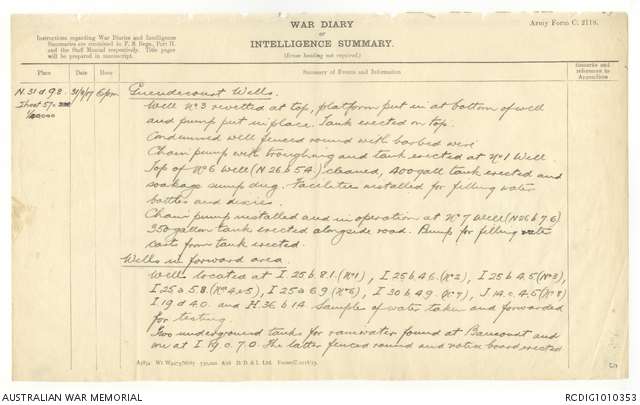 WAR DIARY
or
INTELLIGENCE SUMMARY.
(Erase heading not required.)
Army Form C. 2118.
Instructions regarding War Diaries and Intelligence
Summaries are contained in F. S. Regs., Part II.
and the Staff Manual respectively. Title pages
will be prepared in manuscript.
Place Date Hour Summary of Events and Information Remarks and references to Appendices
N.31d.9.8. 31/3/17 6pm Gueudecourt Wells.
Sheet 57c
1/40000
Well No 3 revetted at top, platform put in at bottom of well
and pump put in place. Tank erected on top.
Condemned well fenced round with barbed wire.
Chain pump with troughing and tank erected at No 1 Well.
Top of No 6 Well (N 26 b 5.4.) cleaned, 400 gall tank erected and
soakage sump dug. Facilities installed for filling water
bottles and dixies.
Chain pump installed and in operation at No 7 Well (N 26 b 7.6)
350 gallon tank erected alongside road. Pump for filling water
carts from tank erected.
Wells in forward area.
Wells located at I 25 b 8.1. (No 1), I 25 b 4.6. (No 2), I 25 b 4.5 (No 3),
I 25 a 5.8. (No 4 & 5), I 25 a 6.9. (No 6), I 30 b 4.9. (No 7), J 14 c. 4.5 (No 8)
I 19 d 4.0. and H. 36 b 1.4. Samples of water taken and forwarded
for testing.
Two underground tanks for rainwater found at Bancourt and
one at I 19. c. 7.0. The latter fenced round and notice board erected
D. D. & L. Ltd.
AUSTRALIAN WAR MEMORIAL
RCDIG1010353